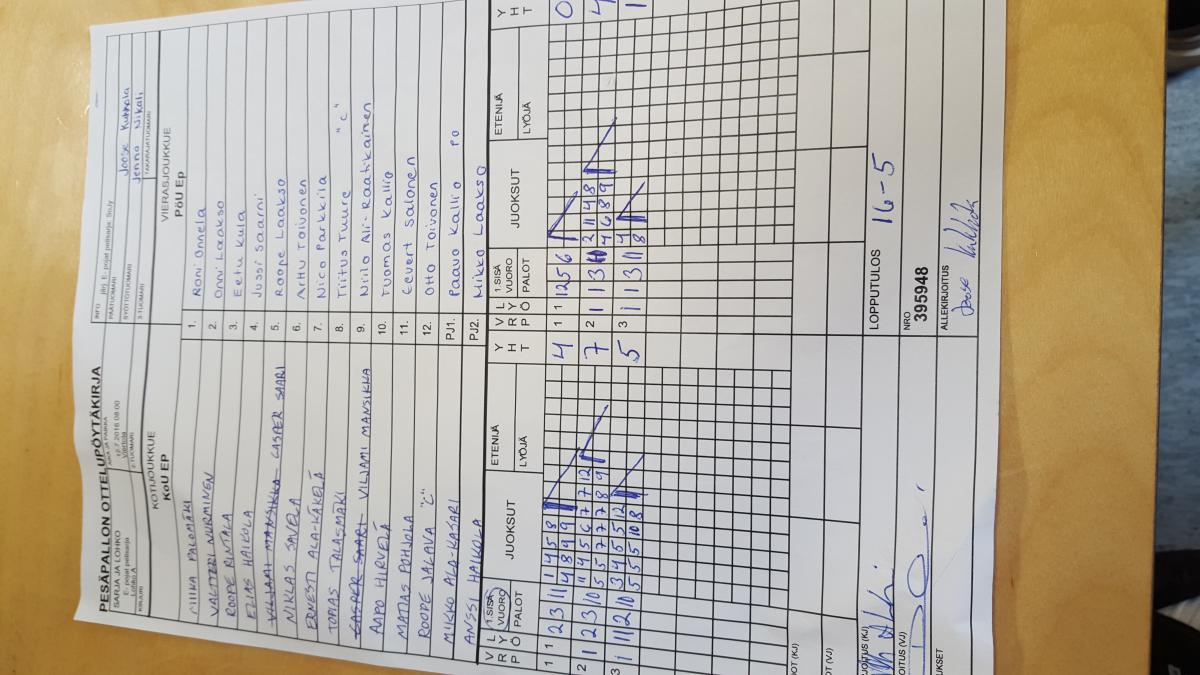 PESÄPALLON OTTELUPÖYTÄKIRJA
SARJA JA LOHKO
E- pojat pelisarja
Lohko A
KIRJURI
AIKA JA PAIKKA
12.7.2016 08:00
Viertola
2-TUOMARI
INFO jikj E- pojat pelisarja: SoJy
PÄÄTUOMARI
SYÖTTÖTUOMARI Joose Kukkola
3-TUOMARI Jenna Nikali
TAKARAJATUOMARI
KOTIJOUKKUE
KoU EP
VIERASJOUKKUE
PöU Ep
PALOMÄKI 1. Roni Onnela
VALTTERI NURMINEN 2. Onni Laakso
ROOPE RINTALA 3. Eetu Kula
ELIAS HAIKOLA 4. Jussi Saarni
VILJAMI MANSIKKA CASPER SAARI 5. Roope Laakso
NIKLAS SAVELA 6. Arttu Toivonen
ERNESTI ALA-KÄKELÄ 7. Nico Parkkila
TOMAS TALASMÄKI 8. Titus Tuure "C"
CASPER SAARI VILJAMI MANSIKKA 9. Niilo Ali-Raatikainen
AAPO HIRVELÄ 10. Tuomas Kallio
MATIAS POHJOLA 11. Eevert Salonen
ROOPE JALAVA "C" 12. Otto Toivonen
MIKKO ALA-KASARI PJ1. Paavo Kallio PO
ANSSI HAIKOLA PJ2. Mikko Laakso
V P L R Y Ö 1.SISÄ VUORO PALOT JUOKSUT ETENIJÄ LYÖJÄ Y H T V P L R Y Ö 1.SISÄ VUORO PALOT JUOKSUT ETENIJÄ LYÖJÄ Y H T
1 1 2 3 11 1 4 5 8 4 1 1 12 5 6 0
4 8 9 9
2 1 2 3 10 11 4 5 6 7 7 12 7 2 1 1 3 2 11 4 8 4
5 5 7 7 7 8 9 4 6 8 9
3 1 11 2 10 3 4 5 5 12 5 3 1 1 3 11 4 1
5 5 5 10 8 8
OT (KJ)
OT (VJ)
OITUS (KJ)
LOPPUTULOS 16-5
OITUS (VJ)
NRO
395948
UKSET
ALLEKIRJOITUS
Joose Kukkola